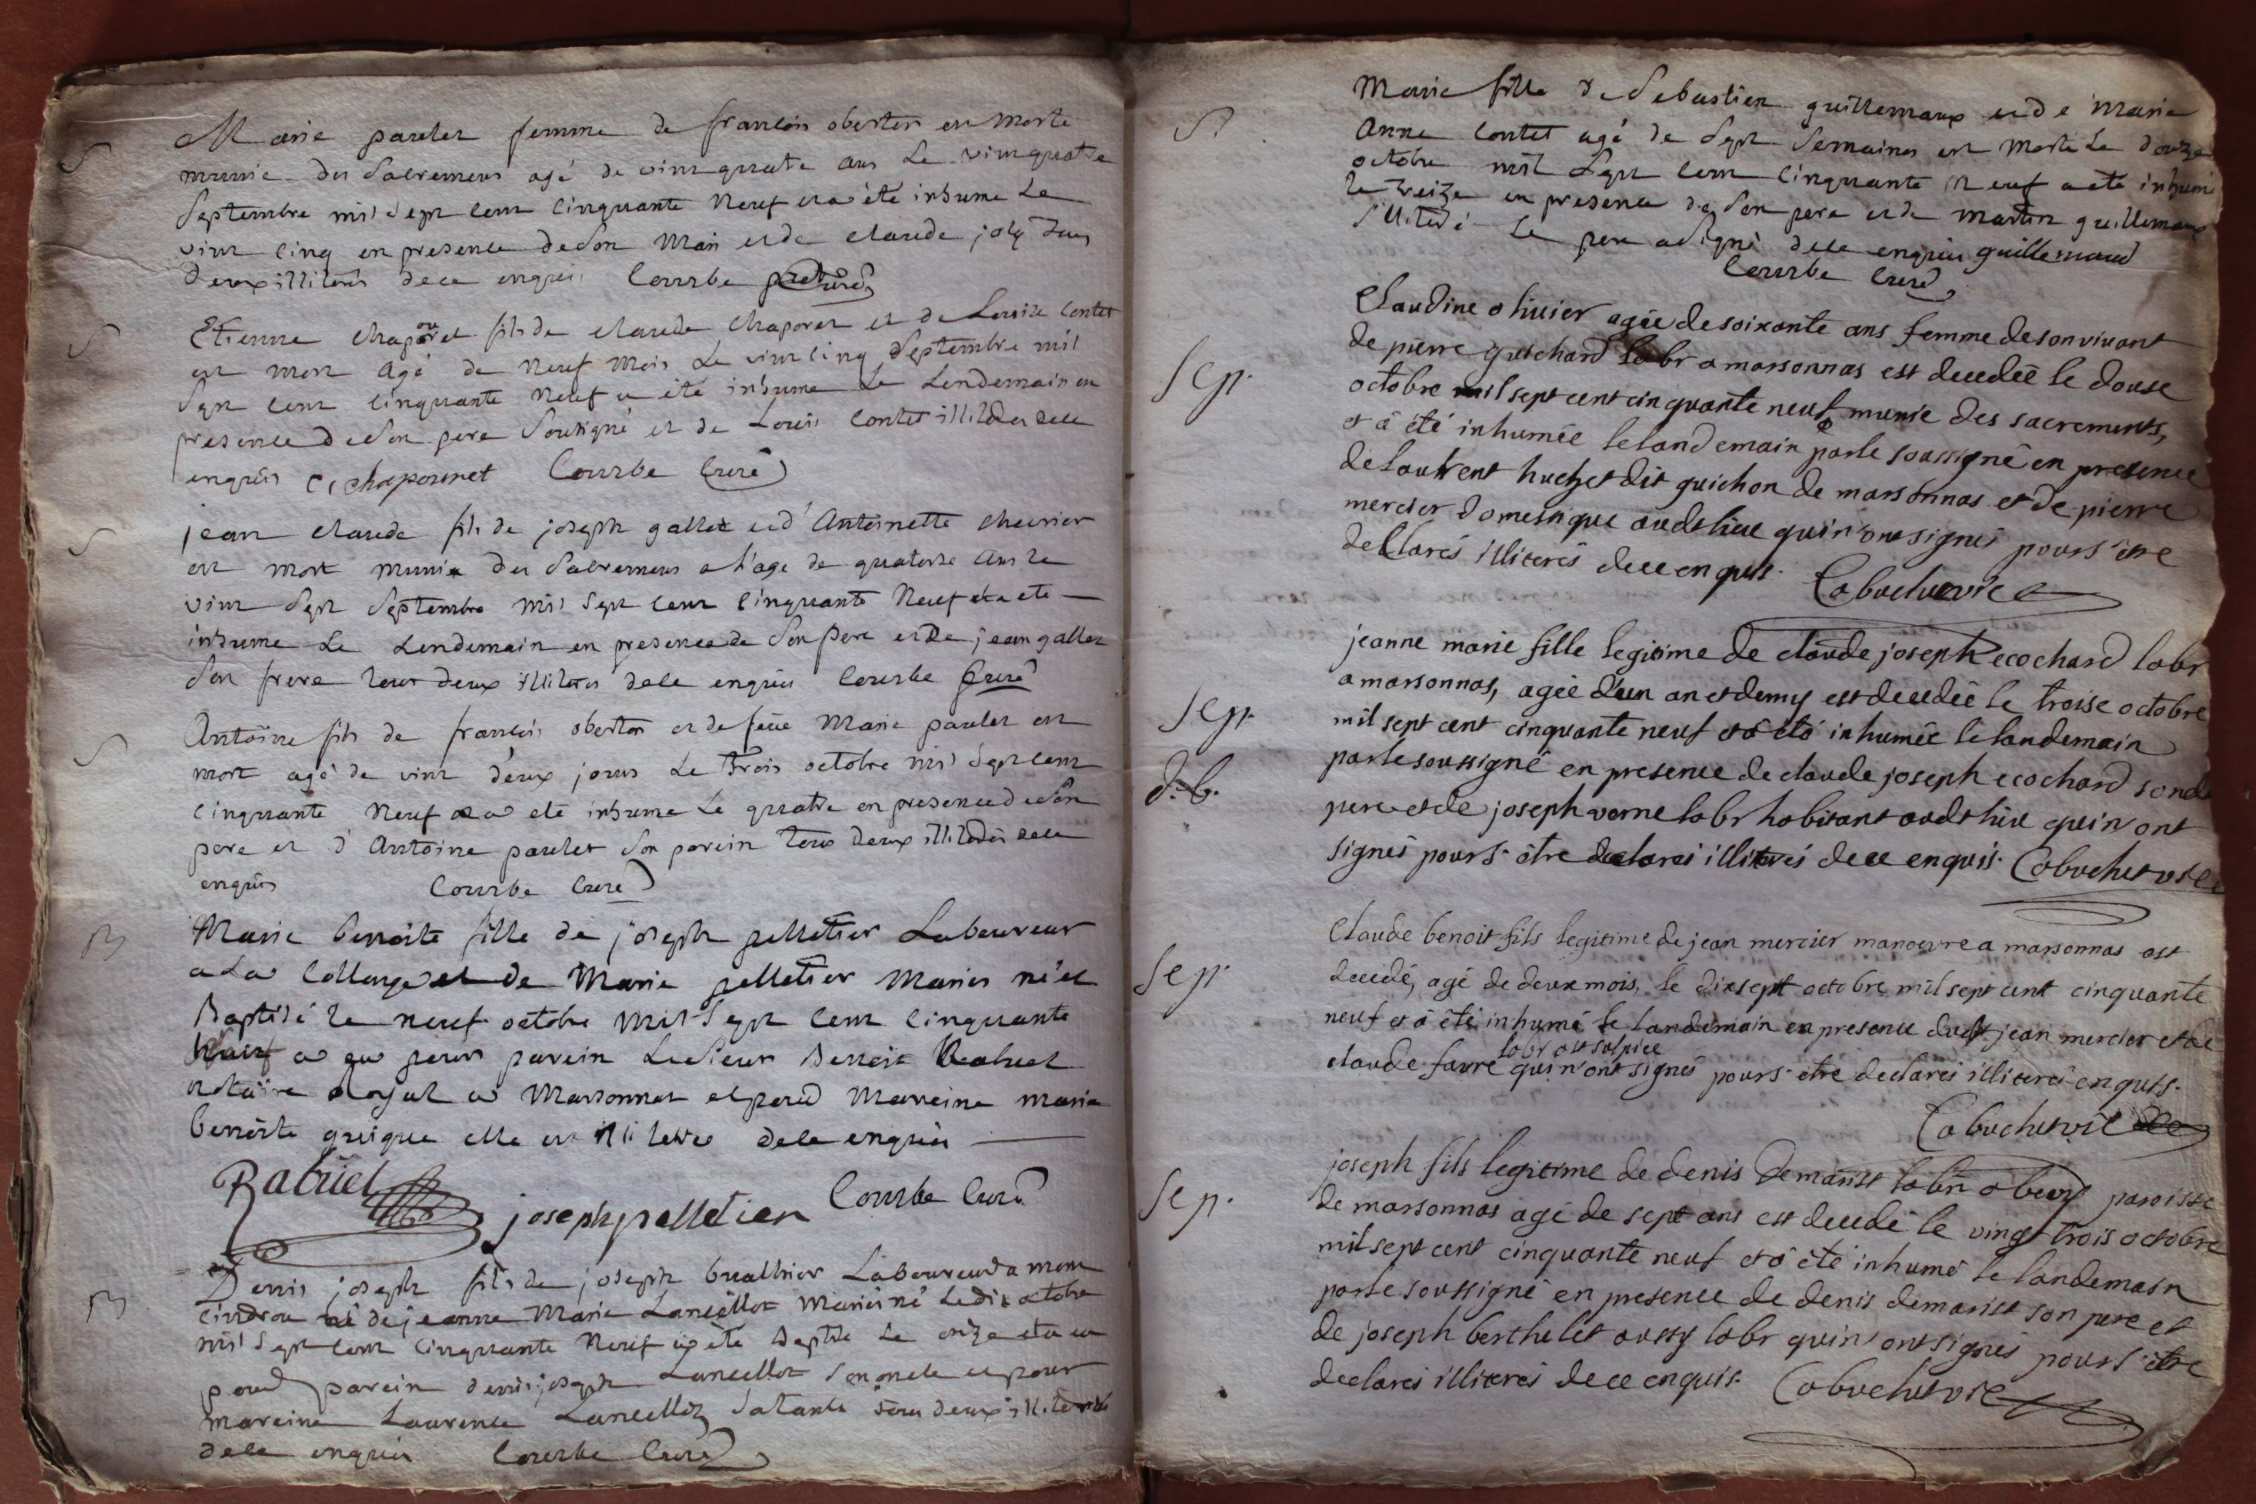 S
Marie paulet femme de françois oberton est morte
munie des Sacremens agé de vint quatre ans Le vint quatre
Septembre mil Sept cent cinquante Neuf et a été inhumé Le
vint cinq en presence de Son Mari et de claude joly Tous
deux illiterés de ce enquis Courbe Curé
S
Etienne chaponet fils de claude chaponet et de Louise Contet
est mort Agé de Neuf Mois Le vint cinq Septembre mil
Sept cent cinquante Neuf a été inhumé Le Lendemain en
presence de Son pere Sousigné et de Louis Contet illiteré de ce
enquis C, chapounet Courbe Curé
S
jean claude fils de joseph gallet et d'Antoinette chevrier
est mort munie des Sacremens a L'age de quatorze ans Le
vint Sept Septembre mil Sept cent cinquante Neuf et a eté
inhumé Le Lendemain en presence de Son Pere et De jean gallet
Son frere Tout deux illiterés de ce enquis Courbe Curé
S
Antoine fils de françois oberton et de feüe Marie paulet est
mort agé de vint deux jours Le Trois octobre mil Sept cent
cinquante Neuf et a eté inhumé Le quatre en presence de Son
pere et d'Antoine paulet Son parein Tous deux illiterés de ce
enquis Courbe Curé
B
Marie benoite fille de joseph pelletier Laboureur
a La Collonge et de Marie pelletier Mariés né et
Baptisé Le neuf octobre Mil Sept cent cinquante
Neuf a eu pour parein Le Sieur Benoit Rabuel
notaire Royal a Marsonnas et pour Mareine marie
benoite quique elle est illiterée de ce enquis
Rabüel joseph pelletier Courbe Curé
B
Denis joseph fils de joseph breathier Laboureur a mont
cindrou et de jeanne Marie Lancellot Mariés né Le dix octobre
mil Sept cent cinquante Neuf a eté Baptisé Le onze et a eu
pour parein denis joseph Lancellot Son oncle et pour
mareine Laurence Lancellot Sa tante Tous deux illiterés
de ce enquis Courbe Curé
S
Marie fille de Sebastien guillemaux et de Marie
Anne Contet agé de Sept Semaines est Morte Le douze
octobre mil Sept cent cinquante Neuf a eté inhumé
le treize en presence de Son pere et de Martin guillemaux
illiteré Le pere a Signé de ce enquis guillemaud
Courbe Curé
Sep.
Claudine olivier agée de soixante ans femme de son vivant
de pierre guichard labr a marsonnas est decedée le douse
octobre mil sept cent cinquante neuf munie des sacrements,
et a été inhumée le landemain par le soussigné en presence
de laurent huchet dit guichon de marsonnas et de pierre
mercier domestique audt lieu qui n'ont signés pours être
declarés illiterés de ce enquis. Cabuchet vic
Sep.
d. b.
jeanne marie fille legitime de claude joseph ecochard labr
a marsonnas, agée d'un an et demy est decedée le treise octobre
mil sept cent cinquante neuf et a été inhumée le landemain
par le soussigné en presence de claude joseph ecochard sondt
pere et de joseph verne labr habitant audt lieu qui n'ont
signés pours. être declarés illiterés de ce enquis. Cabuchet vic
Sep.
Claude benoit fils legitime de jean mercier manoevre a marsonnas est
decedé, agé de deux mois, le dixsept octobre mil sept cent cinquante
neuf et a été inhumé le landemain en presence dudt jean mercier et de
claude favre labr qui n'ont signés pours. être declarés illiterés enquis.
Cabuchet vic
Sep.
joseph fils legitime de denis demarist labr paroisse
de marsonnas agé de sept ans est decedé le vingt trois octobre
mil sept cent cinquante neuf et a été inhumé le landemain
par le soussigné en presence de denis demarist son pere et
de joseph berthelet aussy labr qui n'ont signés pours. être
declarés illiterés de ce enquis. Cabuchet vic